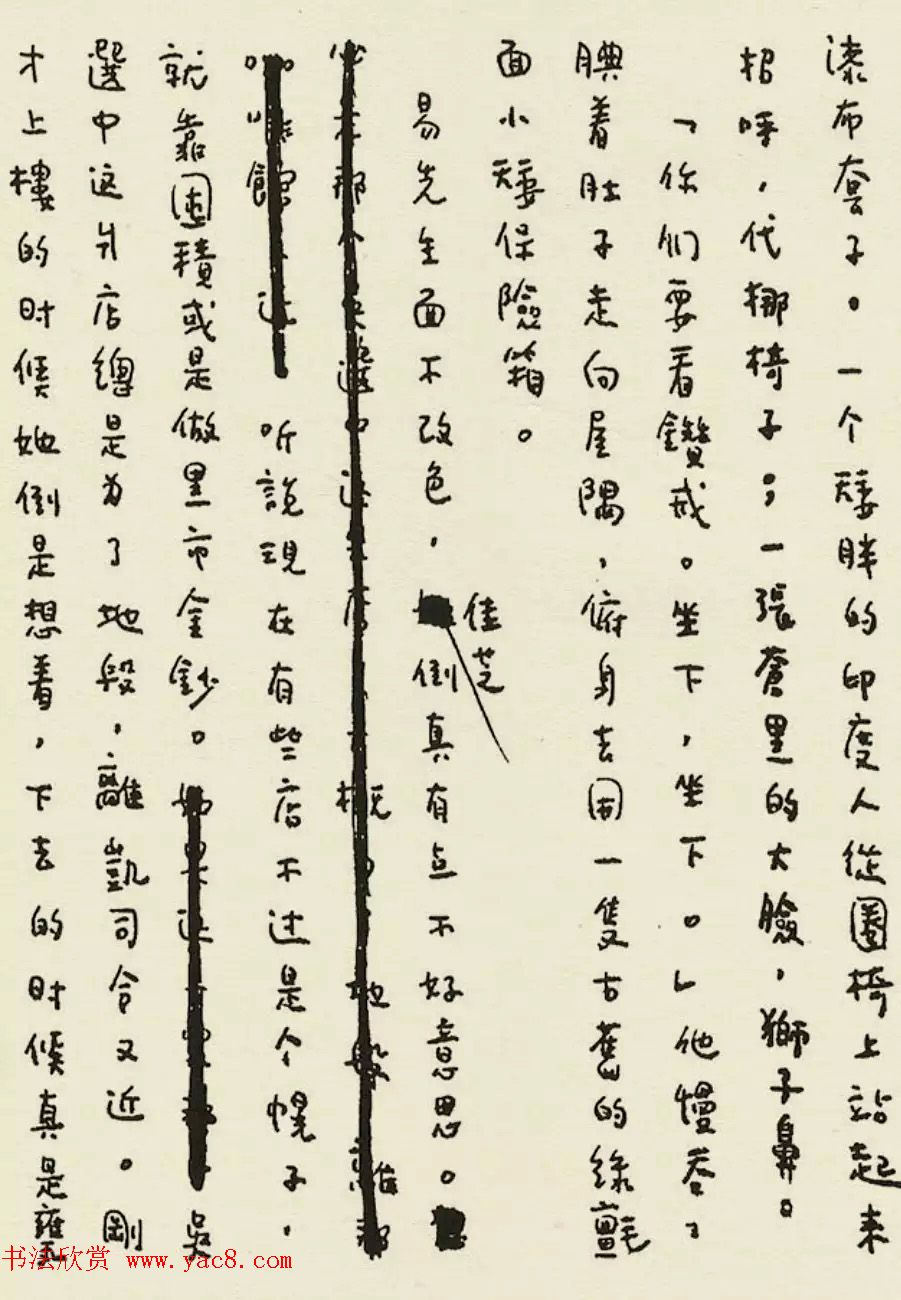 漆布套子。一个矮胖的印度人從圈椅上站起来
招呼，代挪椅子；一張蒼黑的大臉，獅子鼻。
「你们要看鑽戒。坐下，坐下。」他慢吞吞
腆着肚子走向屋隅，俯身去開一隻古舊的綠氈
面小矮保險箱。
易先生面不改色，佳芝倒真有点不好意思。
听説現在有些店不过是个幌子，
就靠囤積或是做黑市金鈔。吳
選中这爿店總是为了地段，離凱司令又近。剛
才上樓的时候她倒是想着，下去的时候真是甕
书法欣赏 www.yac8.com